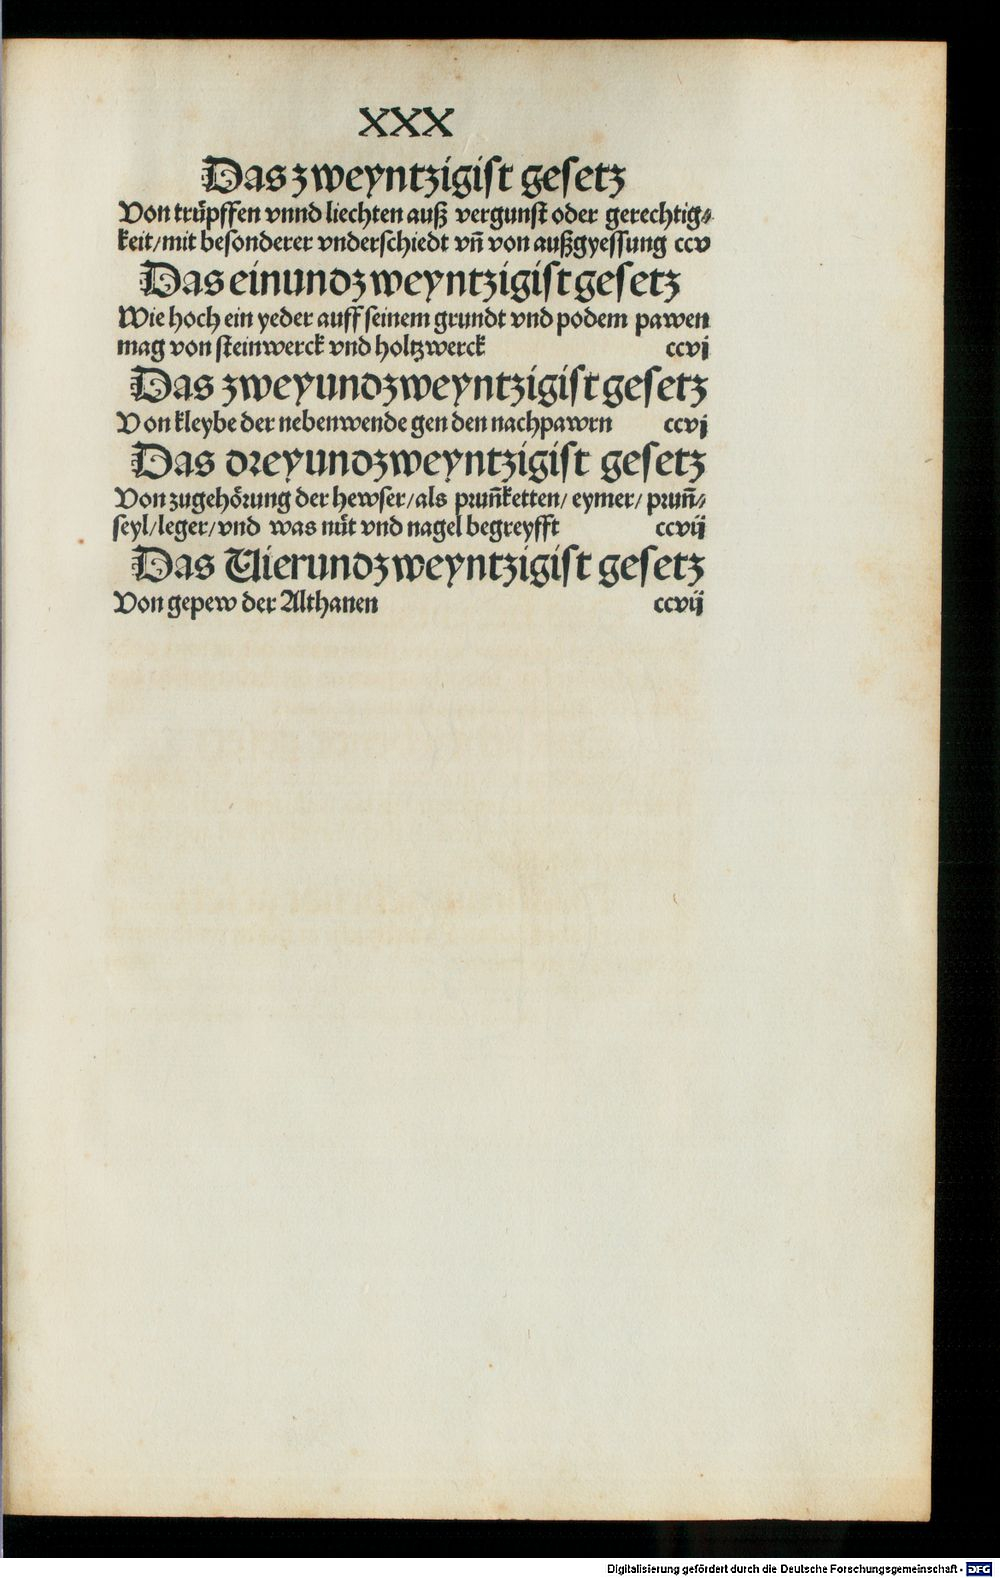 XXX
Das zweyntzigist gesetz
Von trüpffen vnnd liechten auß vergunst oder gerechtig⸗
keit/mit besonderer vnderschiedt vn̄ von außgyessung ccv
Das einundzweyntzigist gesetz
Wie hoch ein yeder auff seinem grundt vnd podem pawen
mag von steinwerck vnd holtzwerck ccvj
Das zweyundzweyntzigist gesetz
Von kleybe der nebenwende gen den nachpawrn ccvj
Das dreyundzweyntzigist gesetz
Von zugehörung der hewser/als prun̄ketten/ eymer/ prun̄⸗
seyl/leger/vnd was nüt vnd nagel begreyfft ccvij
Das Vierundzweyntzigist gesetz
Von gepew der Althanen ccvij
Digitalisierung gefördert durch die Deutsche Forschungsgemeinschaft - DFG